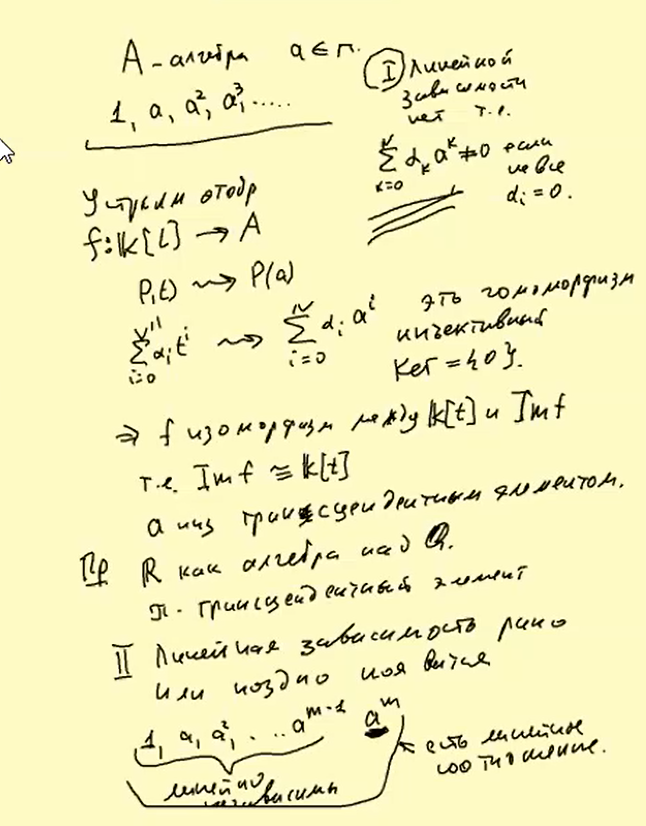 A - алгебра a ∈ A.
1, a, a², a³, .....
I Линейной
зависимости
нет т.е.
∑_{k=0}^{N} α_k a^k ≠ 0 если
не все
α_i = 0.
Устроим отобр
f: 𝕜[t] → A
P(t) ⇝ P(a)
∑_{i=0}^{N} α_i t^i ⇝ ∑_{i=0}^{N} α_i a^i
это гомоморфизм
инъективный
Ker = {0}.
⇒ f изоморфизм между 𝕜[t] и Im f
т.е. Im f ≅ 𝕜[t]
a наз трансцендентным элементом.
Пр ℝ как алгебра над ℚ.
π - трансцендентный элемент
II Линейная зависимость рано
или поздно появится
1, a, a², ... a^{m-1} a^m
линейно
независимы
есть линейное
соотношение.